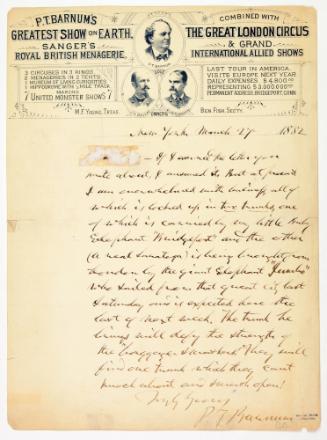 P.T. BARNUM'S
GREATEST SHOW ON EARTH.
SANGER'S
ROYAL BRITISH MENAGERIE.
COMBINED WITH
THE GREAT LONDON CIRCUS
& GRAND
INTERNATIONAL ALLIED SHOWS
3 CIRCUSES IN 3 RINGS.
MENAGERIES IN 2 TENTS
MUSEUM OF LIVING CURIOSITIES
HIPPODROME WITH ½ MILE TRACK
MAKING
7 UNITED MONSTER SHOWS 7
LAST TOUR IN AMERICA.
VISITS EUROPE NEXT YEAR
DAILY EXPENSES $4800
REPRESENTING $3,000,000
PERMANENT ADDRESS, BRIDGEPORT, CONN.
OWNERS
M.F. YOUNG, TREAS. BEN FISH, SECTY.
New York March 27 1882
If I received the letter you
write about, I answered it. But at present
I am overwhelmed with writings all of
which is locked up in two trunks, one
of which is carried by my little Baby
Elephant "Bridgeport" and the other
(a real Saratoga) is being brought from
London by the giant Elephant "Jumbo"
who sailed from that great city last
Saturday and is expected here the
last of next week. The trunk he
brings will defy the strength of
the baggage smashers! They will
find one trunk which they can't
knock about and smash open!
Truly Yours
P. T. Barnum